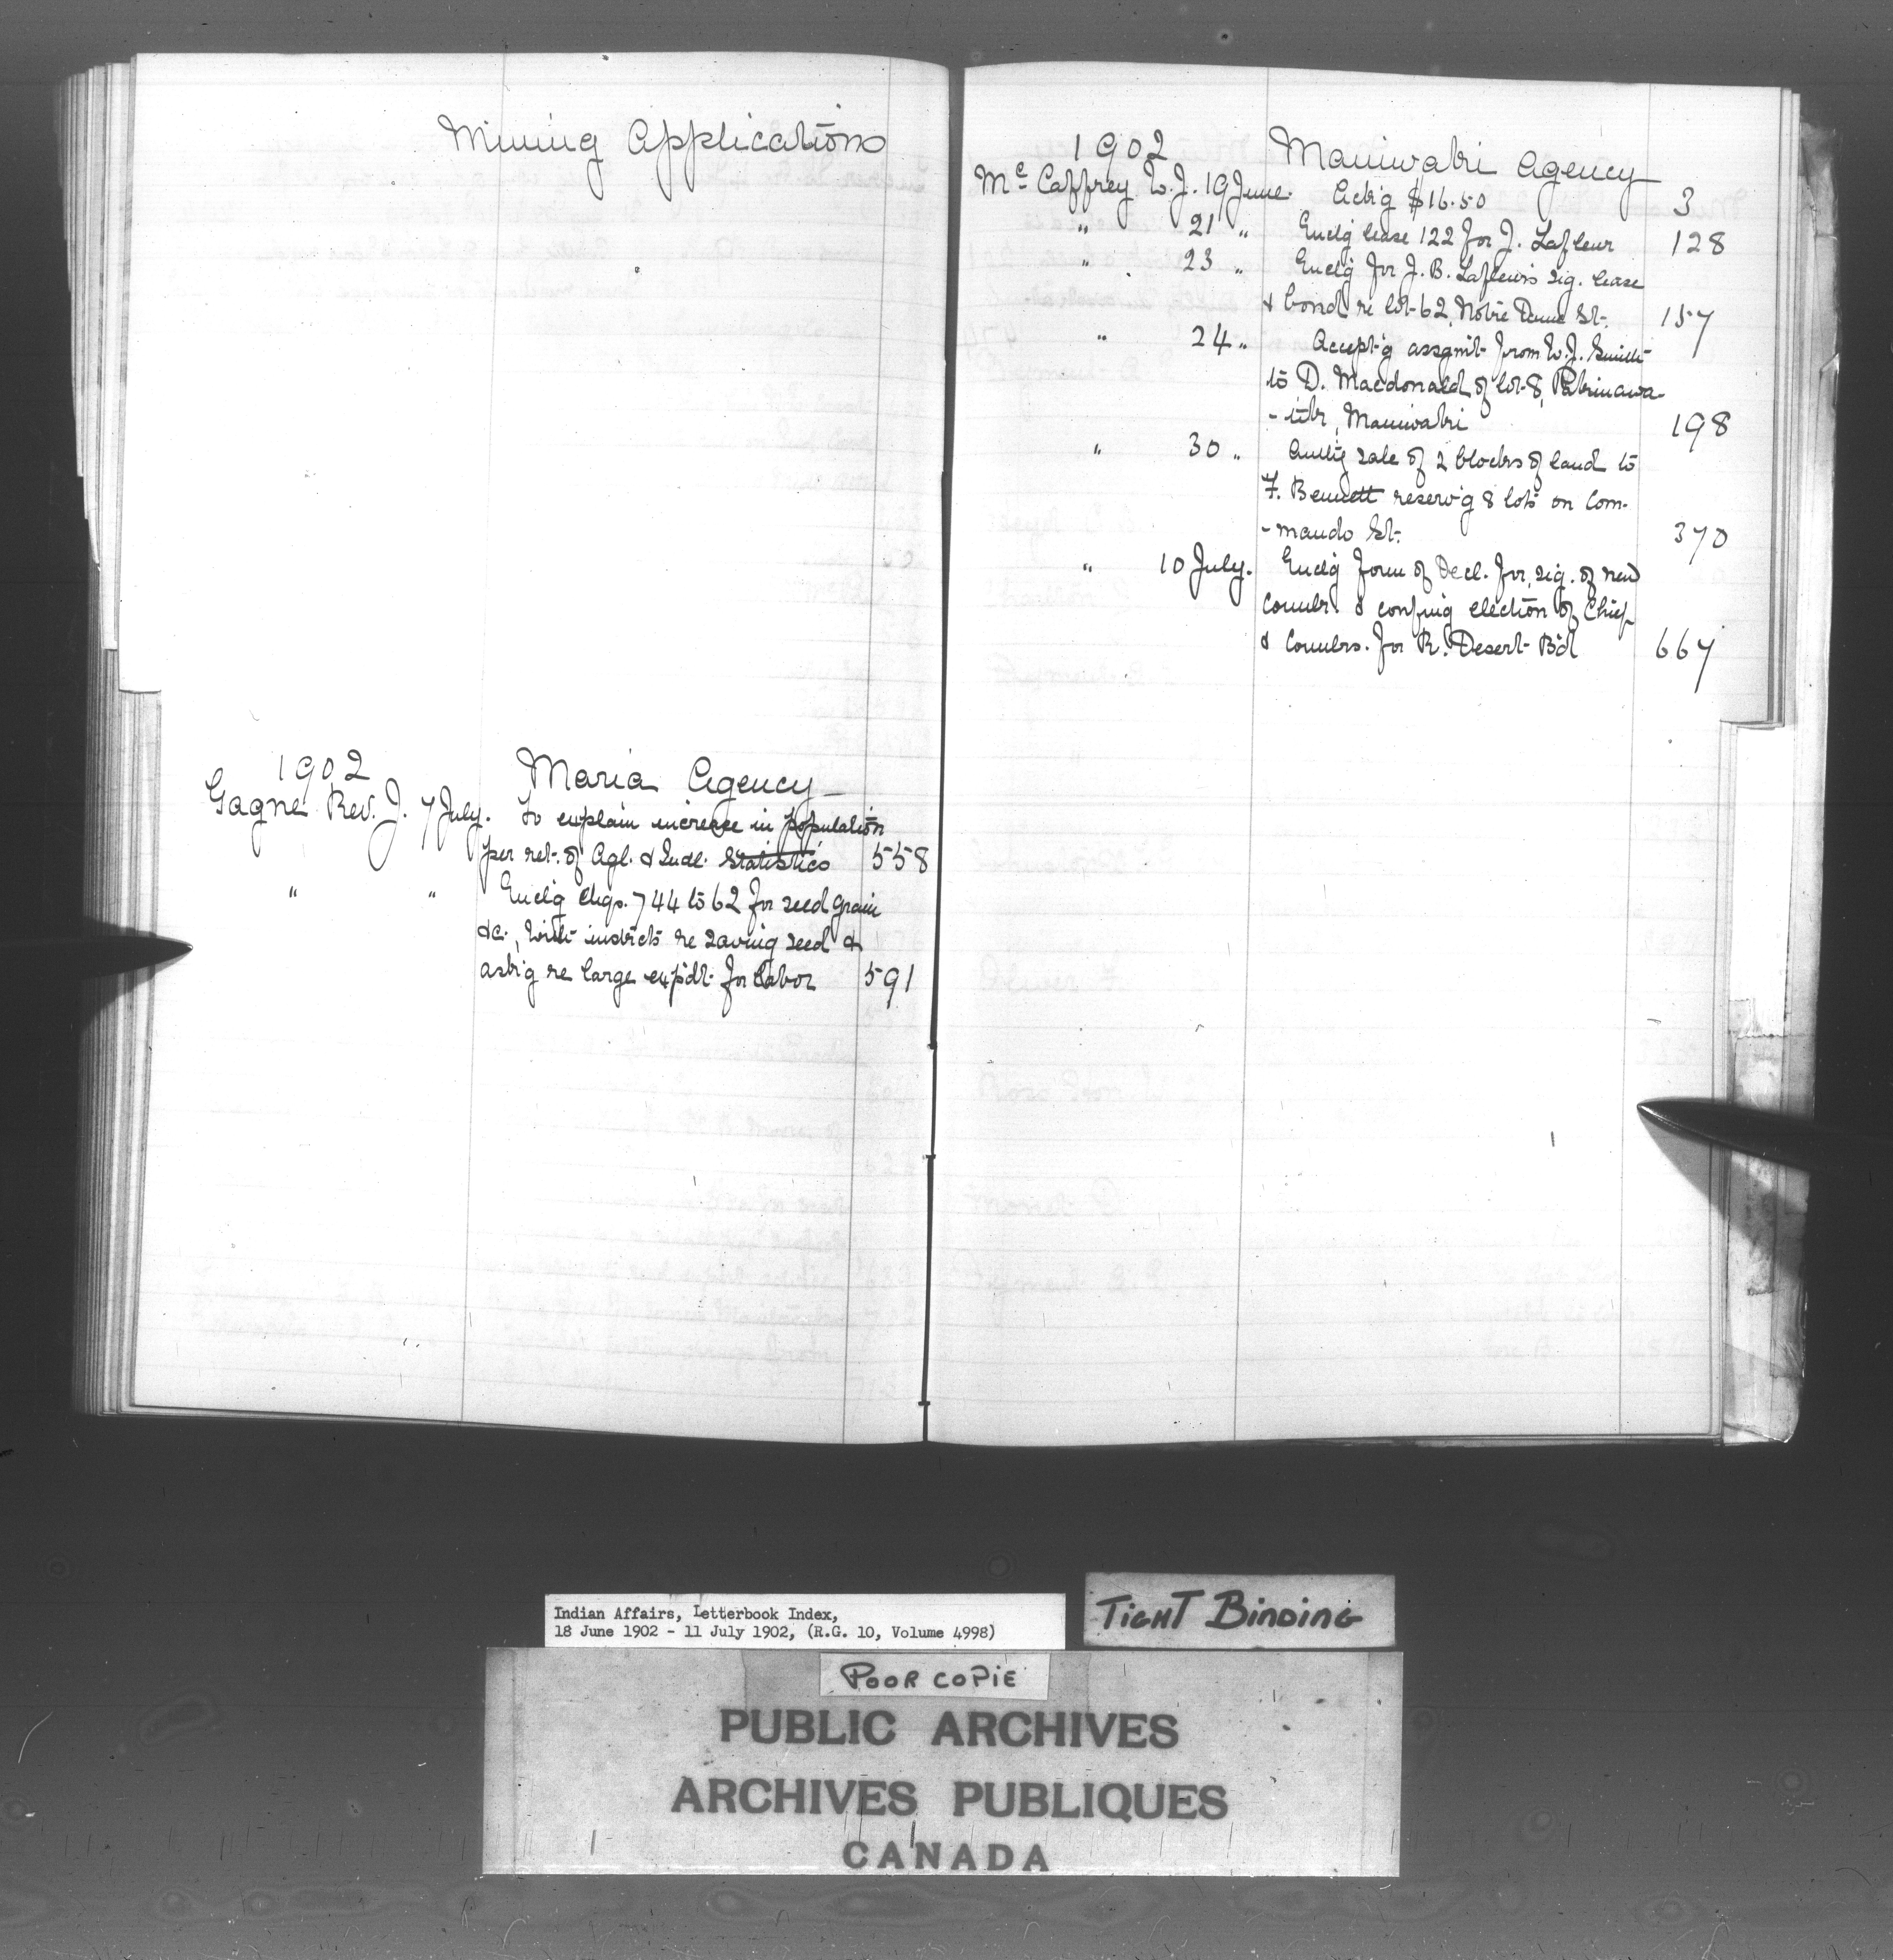 Mining Applications
1902 Maria Agency
Gagne Rev. J. 7 July. To explain increase in population
per ret. of Agl. & Indl. Statistics 558
" " Enclg chqs. 744 to 62 for seed grain
&c., with instrcts re saving seed &
askg re large expdt. for labor 591
1902 Maniwaki Agency
McCaffrey W.J. 19 June. Ackg $16.50 3
" 21 " Enclg lease 122 for J. Lafleur 128
" 23 " Enclg for J. B. Lafleur's sig. lease
& bond re lot 62, Notre Dame St. 157
" 24 " Accept'g assgmt from W.J. Smith
to D. Macdonald of lot 8,
Maniwaki 198
" 30 " Authg sale of 2 blocks of land to
F. Bennett reserv'g 8 lots on Com-
-mando St. 370
" 10 July. Enclg form of Decl. for sig. of new
Counlr. & confmg election of Chief
& Counlrs. for R. Desert Bd 667
Indian Affairs, Letterbook Index,
18 June 1902 - 11 July 1902, (R.G. 10, Volume 4998)
TIGHT BINDING
POOR COPIE
PUBLIC ARCHIVES
ARCHIVES PUBLIQUES
CANADA